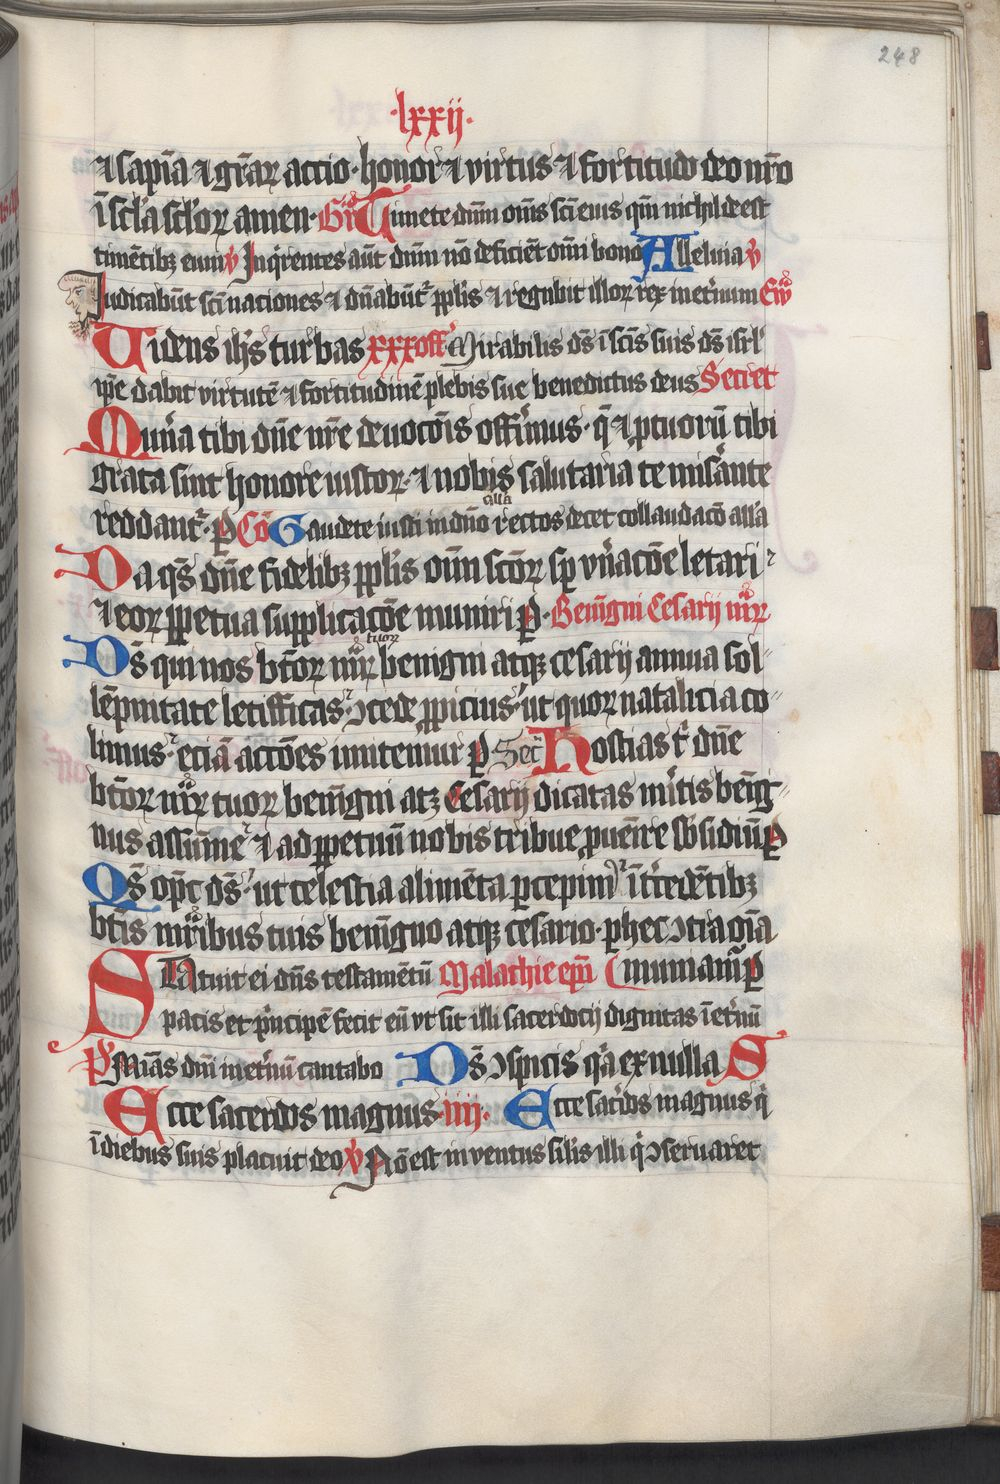 248
·lxxij·
⁊ sapīa ⁊ gr̄aꝝ actio · honor ⁊ virtus ⁊ fortitudo deo nr̄o
ī sc̄la sc̄loꝝ amen · Gr̄ Timete dn̄m om̄s sc̄i eius qm̄ nichil deest
timētibꝫ eum v̄ Inqͥrentes aūt dn̄m nō deficiēt om̄i bono Alleluia v̄
Iudicabūt sc̄i naciones ⁊ dn̄abūt᷑ ppl̄is ⁊ regnabit illoꝝ rex in et̄num Ew̄
Videns ih̄s turbas xxx off̄ Mirabilis ds̄ ī sc̄is suis ds̄ isrl̄
ip̄e dabit virtutē ⁊ fortitudinē plebis sue benedictus deus Secret
Mun̄a tibi dn̄e nr̄e deuoc̄ōis offerimus · q̄ ⁊ ꝑ tuoꝝ tibi
grata sint honore iustoꝝ · ⁊ nobis salutaria te mis̄ante
alla
reddant᷑ · ꝑ Cō Gaudete iusti in dn̄o rectos decet collaudacō all̄a
Da qs̄ dn̄e fidelibꝫ ppl̄is om̄ sc̄oꝝ sꝑ vn̄acōe letari ⁊
⁊ eoꝝ ꝑpetua supplicacōe muniri ꝑ · Benīgni Cesarij mr̄ꝝ
tuoꝝ
Ds̄ qui nos bt̄oꝝ mr̄ꝝ benigni atqꝫ cesarij annua sol-
lēpnitate letifficas · ꝯcede ꝓpicius · ut quoꝝ natalicia co-
limus · eciā actōes imitemur ꝑ Sec̄ Hostias t̄ dn̄e
bt̄oꝝ mr̄ꝝ tuoꝝ benīgni atꝫ Cesarij dicatas mͥtis benīg-
nus assūme · ⁊ ad ꝑpetuū nobis tribue ꝓuēire sb̄sidiū ꝑ
Qs̄ opc̄ ds̄ · ut celestia alimēta ꝑcepim⁹ īt̄cedētibꝫ
bt̄is mr̄ibus tuis benīgno atqꝫ cesario · ꝑ hec ꝯtra oīa
STatuit ei dn̄s testamētū Malachie ep̄i Cmumamꝑ
pacis et pͥncipē fecit eū vt sit illi sacerdocij dignitas ī et̄nū
p̄s Mīas dn̄i in et̄nū cantabo Ds̄ ꝯspicis qͣ ex nulla S
Ecce sacerdos magnus · iiij · Ecce sac̄dos magnus qͥ
ī diebus suis placuit deo v̄ Nō est inventus sil̄is illi qͥ ꝯseruaret